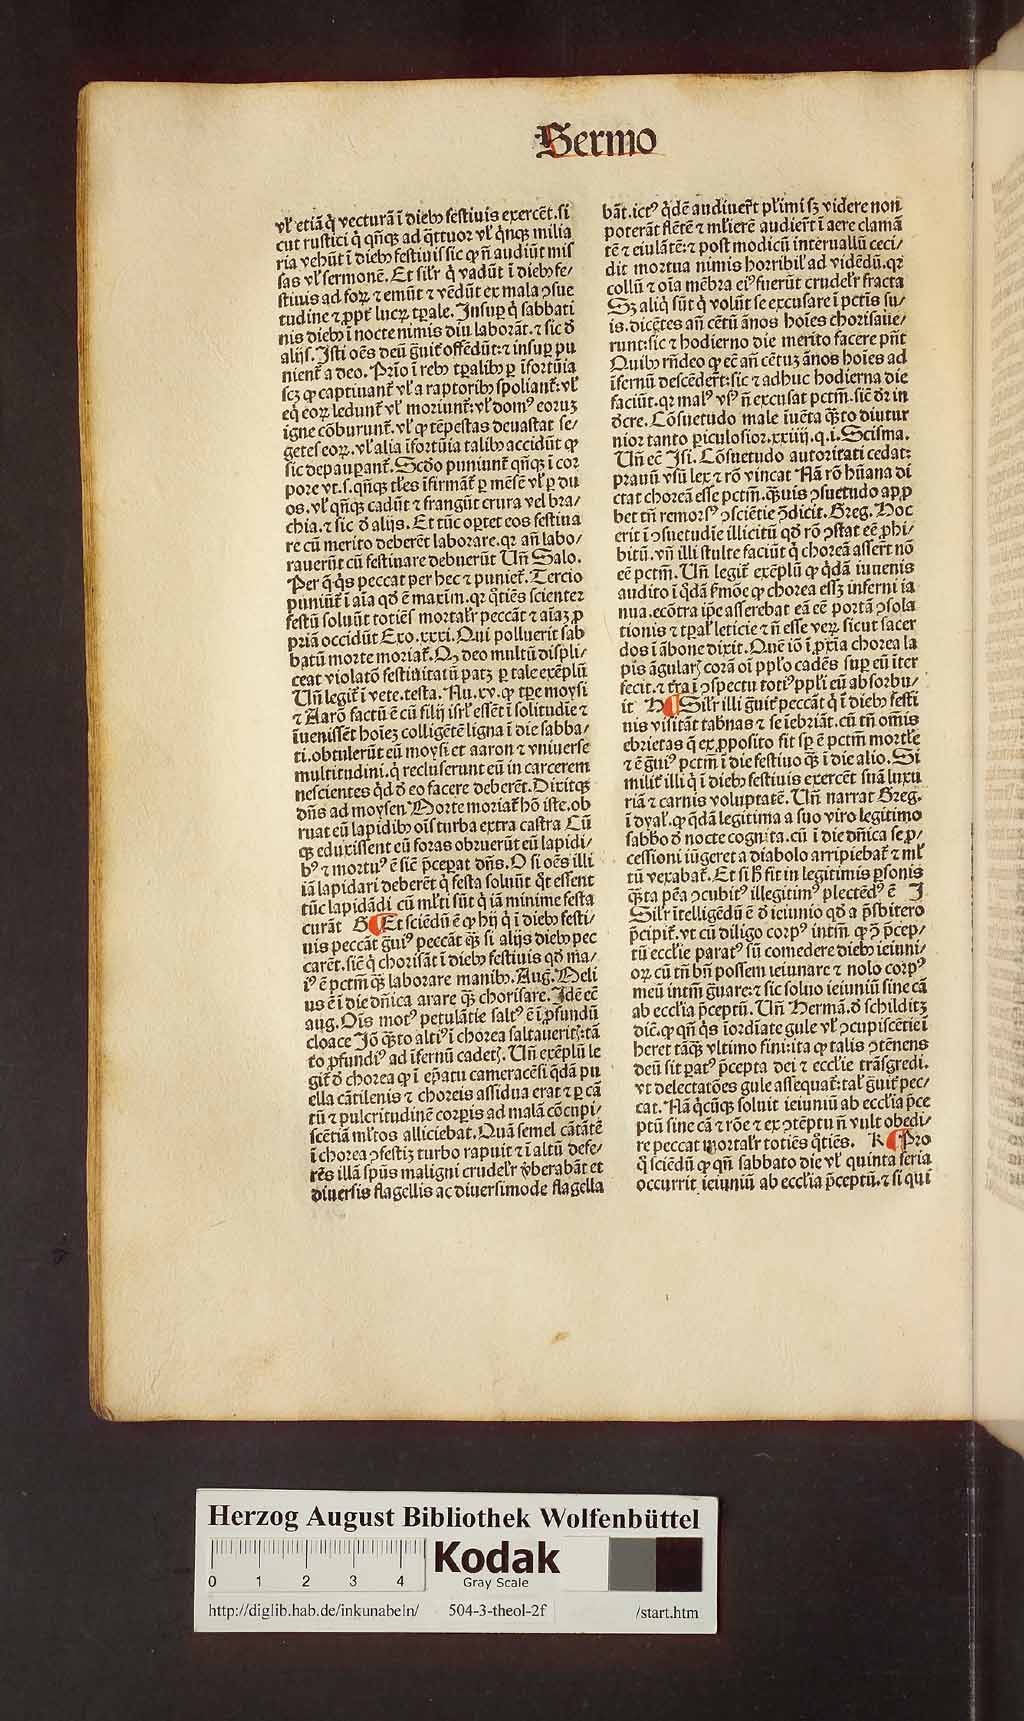 Sermo
vl̕ etiā q̇ vecturā ī dieb⁹ festiuis exercēt. si
cut rustici q̇ qñq̨ ad q̈ttuor vl̕ q̇nq̨ milia
ria vehūt ī dieb⁹ festiuis sic ꝙ ñ audiūt mis
sas vl̕ sermonē. Et sil̕r q̇ vadūt ī dieb⁹ fe⸗
stiuis ad foꝝ ⁊ emūt ⁊ vēdūt ex mala ꝯsue
tudine ⁊ ꝓpt̕ lucꝝ tꝑale. Insuꝑ q̇ sabbati
nis dieb⁹ ī nocte nimis diu laborāt. ⁊ sic đ
alijs. Isti oēs deū g̈uit̕ offēdūt: ⁊ insuꝑ pu
nient̕ a deo. Prīo ī reb⁹ tꝑalib⁹ ꝑ īfortūia
scꝫ ꝙ captiuant̕ vl̕ a raptorib⁹ spoliant̕: vl̕
eq̇ eoꝝ ledunt̕ vl̕ moriunt̕: vl̕ dom⁹ eoruꝫ
igne cōburunt̕. vl̕ ꝙ tēpestas deuastat se⸗
getes eoꝝ. vl̕ alia īfortūia talib⁹ accidūt ꝙ
sic depauꝑant̕. Scđo puniunt̕ qñq̨ ī cor
pore vt. s. qñq̨ tl̕es īfirmāt̕ ꝑ mēsē vl̕ ꝑ du
os. vl̕ qñq̨ cadūt ⁊ frangūt crura vel bra⸗
chia. ⁊ sic đ alijs. Et tūc oꝑtet eos festiua
re cū merito deberēt laborare. qꝛ añ labo⸗
rauerūt cū festinare debuerūt Uñ Salo.
Per q̄ q̇s peccat per hec ⁊ puniet̕. Tercio
puniūt̕ ī aīa qđ ē maxim. qꝛ q̇tiēs scienter
festū soluūt totiēs mortal̕r peccāt ⁊ aīaꝫ ꝓ
priā occidūt Exo. xxxi. Qui polluerit sab
batū morte moriat̕. Qꝫ deo multū displi⸗
ceat violatō festiuitatū patꝫ ꝑ tale exēplū
Uñ legit̕ ī vete. testa. Nu. xv. ꝙ tꝑe moysi
⁊ Aarō factū ē cū filij isrl̕ essēt ī solitudie ⁊
īuenissēt hoieꝫ colligētē ligna ī die sabba⸗
ti. obtulerūt eū moysi et aaron ⁊ vniuerse
multitudini. q̇ recluserunt eū in carcerem
nescientes q̇d đ eo facere deberēt. Dixitq̨
dñs ad moysen Morte moriat̕ hō iste. ob
ruat eū lapidib⁹ oīs turba extra castra Cū
q̨ eduxissent eū foras obruerūt eū lapidi⸗
b⁹ ⁊ mortu⁹ ē sic̄ p̄ceꝑat dñs. O si oēs illi
iā lapidari deberēt q̇ festa soluūt q̇t essent
tūc lapidādi cū ml̕ti sūt q̇ iā minime festa
curāt G ¶ Et sciēdū ē ꝙ hij q̇ ī dieb⁹ festi⸗
uis peccāt g̈ui⁹ peccāt q̄ꝫ si alijs dieb⁹ pec
carēt. sic̄ q̇ chorisāt ī dieb⁹ festiuis qđ ma⸗
i⁹ ē pctm̄ q̄ꝫ laborare manib⁹. Aug̈. Meli
us ē ī die dñica arare q̄ꝫ chorisare. Idē eē
aug. Oīs mot⁹ petulātie salt⁹ ē ī ꝓfundū
cloace Iō q̄ꝫto alti⁹ ī chorea saltauerit̕: tā
to ꝓfundi⁹ ad īfernū cadet̕. Uñ exēplū le
git̕ đ chorea ꝙ ī ep̄atu cameracēsi q̇dā pu
ella cātilenis ⁊ choreis assidua erat ⁊ ꝑ cā
tū ⁊ pulcritudinē corꝑis ad malā cōcupi⸗
scētiā ml̕tos alliciebat. Quā semel cātātē
ī chorea ꝯfestiꝫ turbo rapuit ⁊ ī altū defe⸗
rēs illā spūs maligni crudel̕r v̓berabāt et
diuersis flagellis ac diuersimode flagella
bāt. ict⁹ q̇dē audiuer̄t pl̕imi sꝫ videre non
poterāt flētē ⁊ ml̕ierē audier̄t ī aere clamā
tē ⁊ eiulātē: ⁊ post modicū interuallū ceci⸗
dit mortua nimis horribil̕ ad vidēdū. qꝛ
collū ⁊ oīa mēbra ei⁹ fuerūt crudel̕r fracta
Sꝫ aliq̇ sūt q̇ volūt se excusare ī pctīs su⸗
is. dicētes añ cētū ānos hoies chorisaue⸗
runt: sic ⁊ hodierno die merito facere pn̄t
Quib⁹ rn̄deo ꝙ eē añ cētuꝫ ānos hoies ad
īfernū descēder̄t: sic ⁊ adhuc hodierna die
faciūt. qꝛ mal⁹ vs⁹ ñ excusat pctm̄. sic̄ dr̄ in
đcre. Cōsuetudo male īuēta q̄ꝫto diutur
nior tanto ꝑiculosior. xxiiij. q. i. Scisma.
Uñ eē Isi. Cōsuetudo autoritati cedat:
prauū vsū lex ⁊ rō vincat Nā rō hūana di
ctat choreā esse pctm̄. q̄ꝫuis ꝯsuetudo apꝓ
bet tñ remors⁹ ꝯsciētie ꝯ̄dicit. Greg. Hoc
erit ī ꝯsuetudie illicitū qđ rō ꝯstat eē ꝓhi⸗
bitū. vñ illi stulte faciūt q̇ choreā assert̄ nō
eē pctm̄. Uñ legit̕ exēplū ꝙ q̇dā iuuenis
audito ī q̇dā s̄mōe ꝙ chorea esset inferni ia
nua. ecōtra ip̄e asserebat eā eē portā ꝯsola
tionis ⁊ tꝑal̕ leticie ⁊ ñ esse veꝝ sicut sacer
dos ī ābone dixit. Que iō ī ꝓxīa chorea la
pis āgular̕ corā oī ppl̕o cadēs suꝑ eū iter
fecit. ⁊ tr̄a ī ꝯspectu toti⁹ ppl̕i eū absorbu⸗
it H ¶ Sil̕r illi g̈uit̕ peccāt q̇ ī dieb⁹ festi
uis visitāt tab̓nas ⁊ se iebriāt. cū tñ om̄is
ebrietas q̄ ex ꝓposito fit sꝑ ē pctm̄ mortl̕e
⁊ ē g̈ui⁹ pctm̄ ī die festiuo q̄ꝫ ī die alio. Si
milit̕ illi q̇ ī dieb⁹ festiuis exercēt suā luxu
riā ⁊ carnis voluptatē. Uñ narrat Greg.
ī dyal̕. ꝙ q̄dā legitima a suo viro legitimo
sabb̓o đ nocte cognita. cū ī die dñica se ꝓ⸗
cessioni iūgeret a diabolo arripiebat̕ ⁊ ml̕
tū vexabat̕. Et si h̓ fit in legitimis ꝑsonis
q̄ꝫta pēa ꝯcubit⁹ illegitim⁹ plectēd⁹ ē I
Sil̕r ītelligēdū ē đ ieiunio qđ a p̄sbitero
p̄cipit̕. vt cū diligo corp⁹ intm̄ ꝙ ꝯ̄ p̄cep⸗
tū eccl̕ie parat⁹ sū comedere dieb⁹ ieiuni⸗
oꝝ cū tñ bñ possem ieiunare ⁊ nolo corp⁹
meū intm̄ g̈uare: ⁊ sic soluo ieiuniū sine cā
ab eccl̕ia p̄ceptū. Uñ Hermā. đ schilditꝫ
dic̄. ꝙ qñ q̇s iordīate gule vl̕ ꝯcupiscētie ī
heret tāq̄ꝫ vltimo fini: ita ꝙ talis ꝯtēnens
deū sit ꝑat⁹ p̄cepta dei ⁊ eccl̕ie trāsgredi.
vt delectatōes gule assequat̕: tal̕ g̈uit̕ pec⸗
cat. Nā q̇cūq̨ soluit ieiuniū ab eccl̕ia p̄ce
ptū sine cā ⁊ rōe ⁊ ex ꝯtēptu ñ vult obedi⸗
re peccat mortal̕r totiēs q̇tiēs. K ¶ Pro
q̄ sciēdū ꝙ qñ sabbato die vl̕ quinta feria
occurrit ieiuniū ab eccl̕ia p̄ceptū. ⁊ si qui
Herzog August Bibliothek Wolfenbüttel
0 1 2 3 4
Kodak
Gray Scale
http://diglib.hab.de/inkunabeln/ 504-3-theol-2f /start.htm